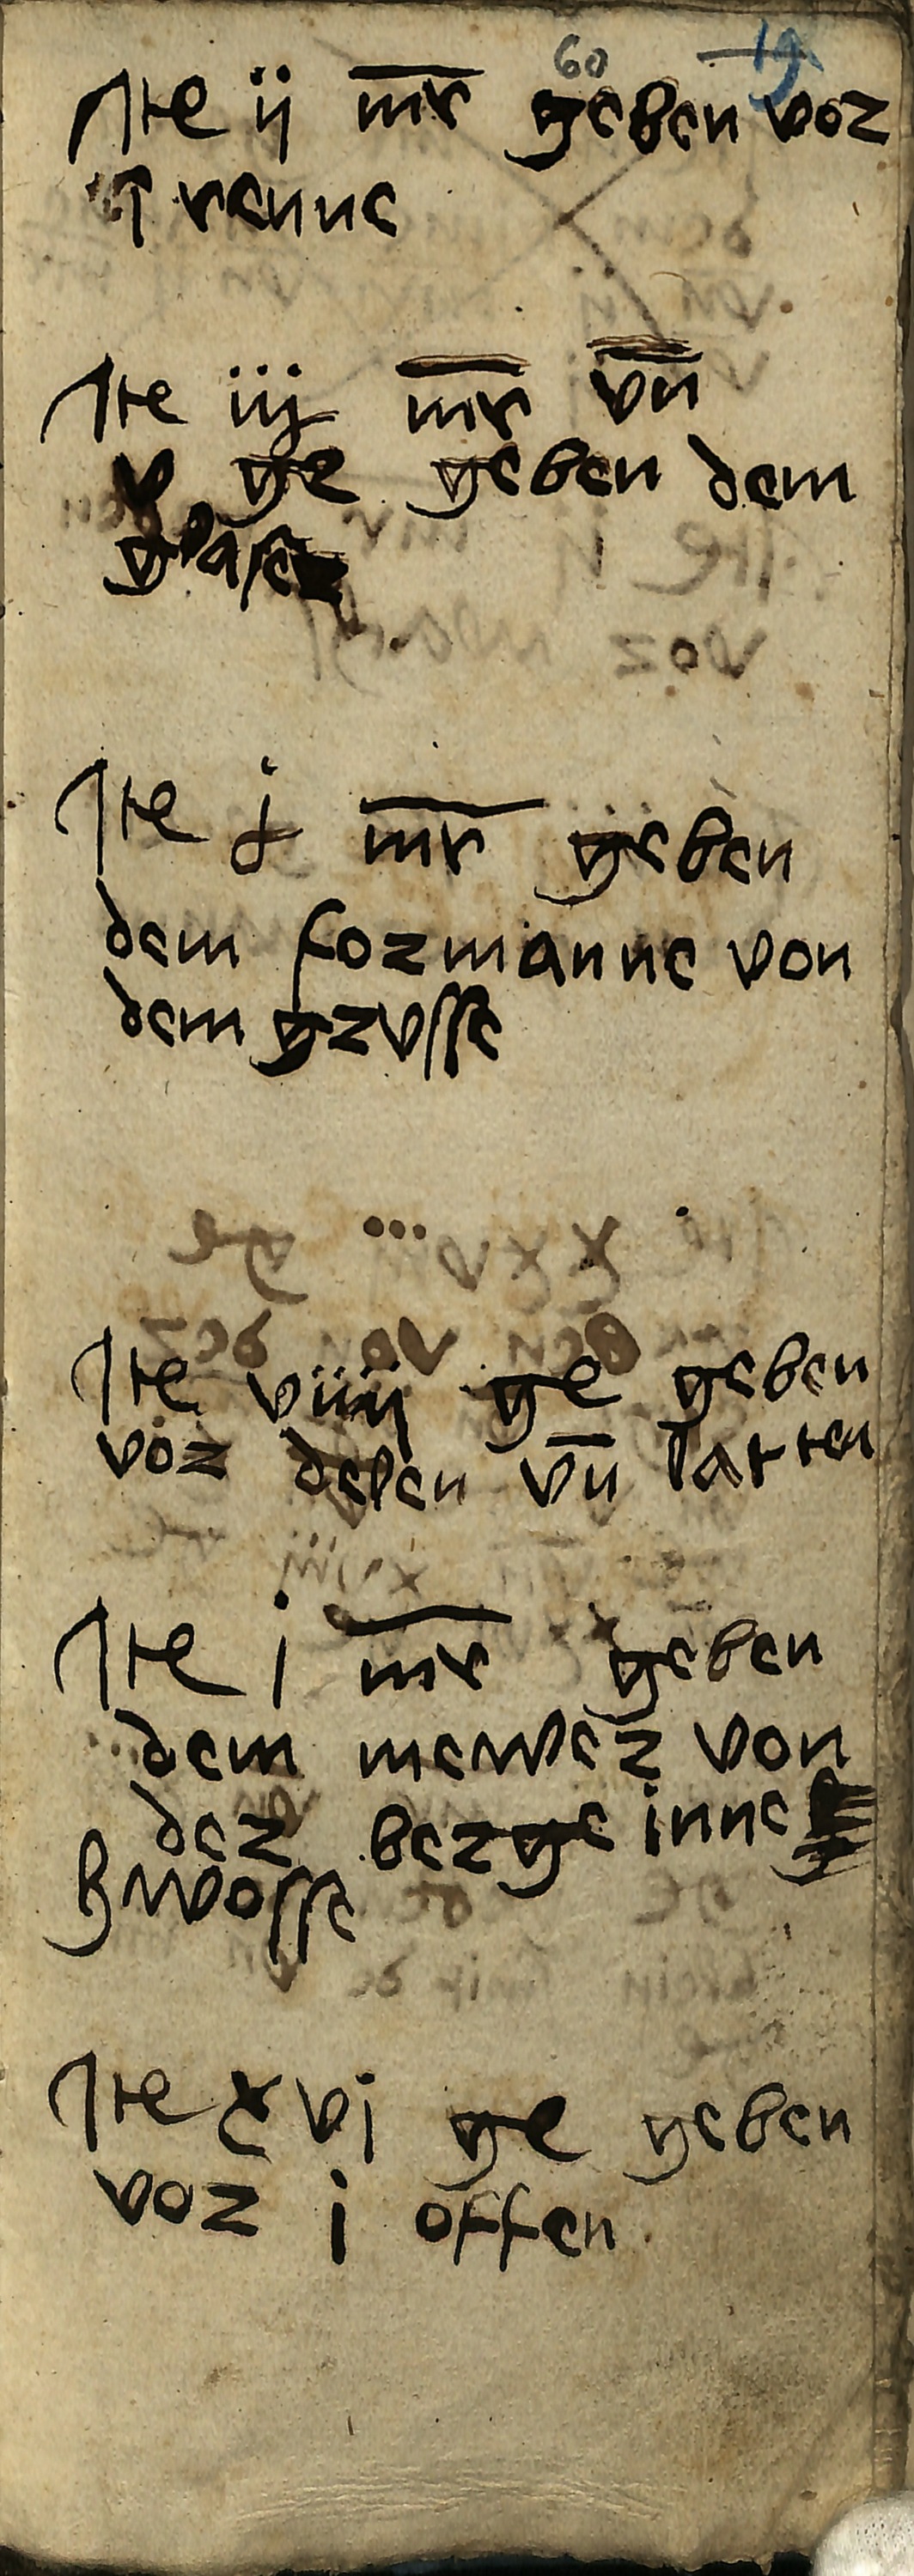 60 19
Ite ij mr̄ geben vor
i renne
Ite iij mr̄ vn̄
v ge geben dem
glaser
Ite j mr̄ geben
dem formanne von
dem grvsse
Ite viiij ge geben
vor delen vn̄ latten
Ite i mr̄ geben
dem mewer von
der berge inne
ꝫwosse
Ite xvi ge geben
vor i offen